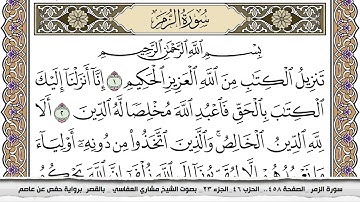 سُورَةُ الزُّمَرِ
بِسْمِ اللَّهِ الرَّحْمَٰنِ الرَّحِيمِ
تَنزِيلُ الْكِتَٰبِ مِنَ اللَّهِ الْعَزِيزِ الْحَكِيمِ ١ إِنَّا أَنزَلْنَا إِلَيْكَ
الْكِتَٰبَ بِالْحَقِّ فَاعْبُدِ اللَّهَ مُخْلِصًا لَّهُ الدِّينَ ٢ أَلَا
لِلَّهِ الدِّينُ الْخَالِصُ وَالَّذِينَ اتَّخَذُوا مِن دُونِهِ أَوْلِيَاءَ
سورة الزمر .. الصفحة ٤٥٨.. الحزب ٤٦ .. الجزء ٢٣ .. بصوت الشيخ مشاري العفاسي .. بالقصر برواية حفص عن عاصم